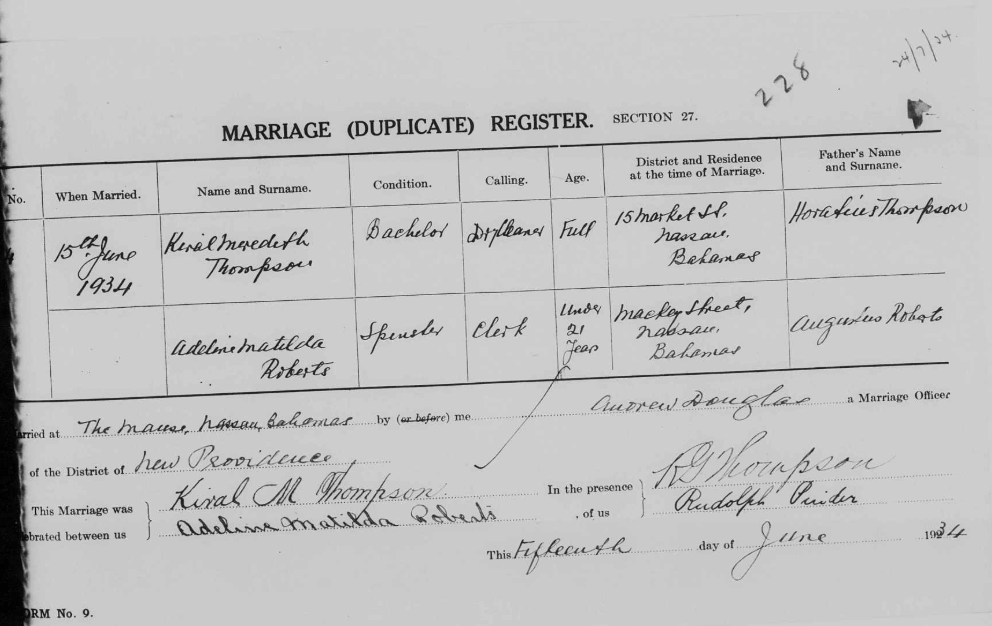 24/7/34.
228
MARRIAGE (DUPLICATE) REGISTER. SECTION 27.
No.
When Married.
Name and Surname.
Condition.
Calling.
Age.
District and Residence
at the time of Marriage.
Father's Name
and Surname.
4
15th June
1934
Kiral Meredith
Thompson
Bachelor
Full
15 Market St.
Nassau,
Bahamas
Horatius Thompson
Adeline Matilda
Roberts
Spinster
Clerk
Under
21
Years
Mackey Street,
Nassau,
Bahamas
Augustus Roberts
rried at The Manse, Nassau, Bahamas by (or before) me Andrew Douglas a Marriage Officer
of the District of New Providence,
This Marriage was
ebrated between us
Kiral M Thompson
Adeline Matilda Roberts
In the presence
of us
R G Thompson
Rudolph Pinder
This Fifteenth day of June 1934
ORM No. 9.